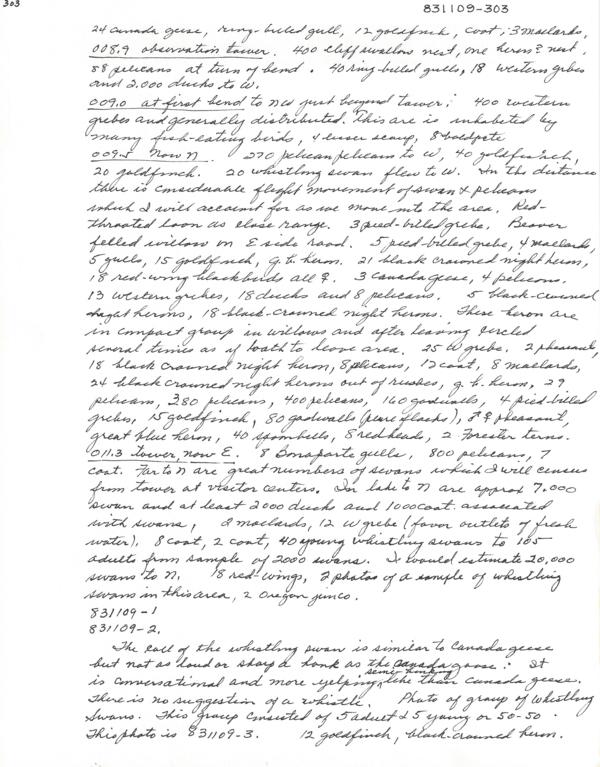 303
831109-303
24 Canada geese, ring-billed gull, 12 goldfinch, coot, 3 maelards,
008.9 observation tower. 400 cliff swallow nest, one heron? nest,
88 pelicans at turn of bend. 40 ring-billed gulls, 18 western grbes
and 2,000 ducks to W.
009.0 at first bend to NW just beyond tower; 400 western
grebes and generally distributed. This are is inhabeted by
many fish-eating birds, 4 lesser scaup, 8 baldpate
009.5 Now N. 270 pelican pelicans to W, 40 goldfinch,
20 goldfinch. 20 whistling swan flew to W. In the distance
there is considerable flight movement of swan & pelicans
which I will account for as we move into the area. Red-
throated loon as close range. 3 pied-billed grebe. Beaver
felled willow on E side road. 5 pied-billed grebe, 4 maelards,
5 gulls, 15 goldfinch, g. b. heron. 21 black crowned night heron,
18 red-wing blackbirds all ♀. 3 Canada geese, 4 pelicans.
13 western grebes, 18 ducks and 8 pelicans. 5 black-crowned
night herons, 18 black-crowned night herons. These heron are
in compact group in willows and after leaving circled
several times as if loath to leave area. 25 W grebe. 2 pheasant,
18 black crowned night heron, 8 pelicans, 12 coot, 8 maelards,
24 black crowned night herons out of rushes, g. b. heron, 29
pelicans, 380 pelicans, 400 pelicans, 160 gadwalls, 4 pied-billed
grebes, 15 goldfinch, 80 gadwalls (pure flocks), ♂ ♀ pheasant,
great blue heron, 40 spoonbills, 8 redheads, 2 Forester terns.
011.3 tower, now E. 8 Bonaparte gulls, 800 pelican, 7
coot. Far to N are great numbers of swans which I will census
from tower at visitor centers. In lake to N are approx 7.000
swan and at least 2000 ducks and 1000 coot associated
with swans, 2 maelards, 12 W grebe (favor outlets of fresh
water), 8 coot, 2 coot, 40 young whistling swans to 105
adults from sample of 2000 swans. I would estimate 20,000
swans to N. 18 red-wings, 2 photos of a sample of whistling
swans in this area, 2 Oregon junco.
831109-1
831109-2.
The call of the whistling swan is similar to Canada geese
but not as loud or sharp a honk as the Canada goose. It
is conversational and more yelping, semi-honking like than Canada geese.
There is no suggestion of a whistle. Photo of group of Whistling
Swans. This group consisted of 5 adult & 5 young or 50-50.
This photo is 831109-3. 12 goldfinch, black-crowned heron.